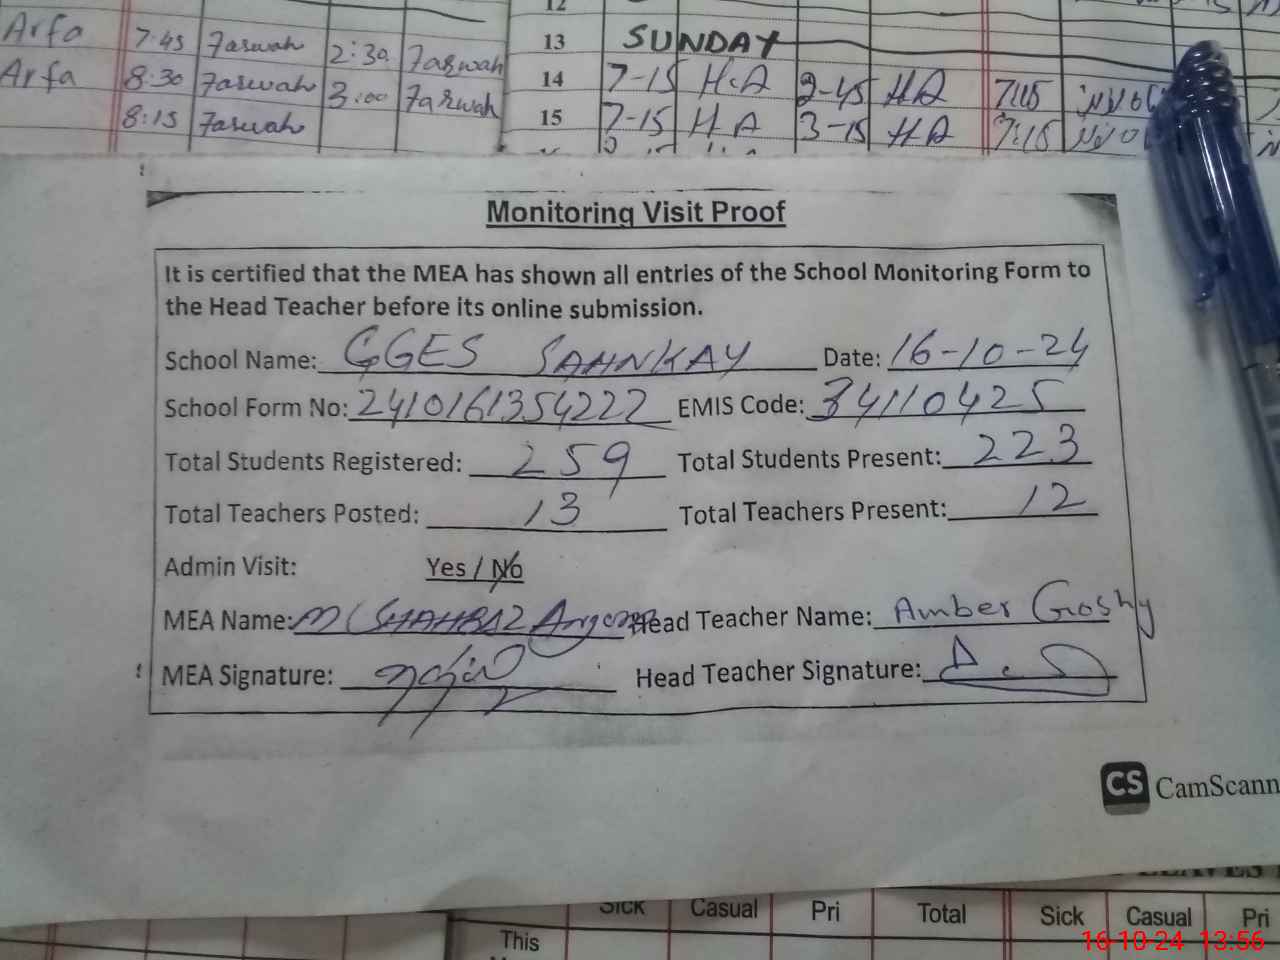 12
Arfa 7:45 Farwah 2:30 Farwah 13 SUNDAY
Arfa 8:30 Farwah 3:00 Farwah 14 7-15 H.A 2-45 HA 7:15
8:15 Farwah 15 7-15 HA 3-15 HA 7:15
Monitoring Visit Proof
It is certified that the MEA has shown all entries of the School Monitoring Form to
the Head Teacher before its online submission.
School Name: GGES SAHNKAY Date: 16-10-24
School Form No: 2410161354222 EMIS Code: 34110425
Total Students Registered: 259 Total Students Present: 223
Total Teachers Posted: 13 Total Teachers Present: 12
Admin Visit: Yes / No
MEA Name: M SHAHBAZ Head Teacher Name: Amber Goshy
MEA Signature: Head Teacher Signature:
CS CamScann
Sick Casual Pri Total Sick Casual Pri
This
16-10-24 13:56